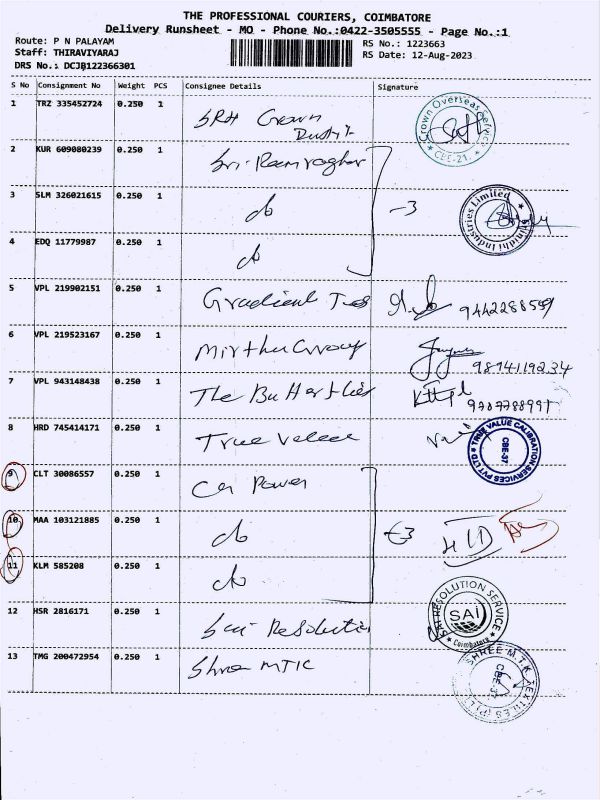 THE PROFESSIONAL COURIERS, COIMBATORE
Delivery Runsheet - MO - Phone No.:0422-3505555 - Page No.:1
Route: P N PALAYAM
Staff: THIRAVIYARAJ
DRS No.: DCJB122366301
RS No.: 1223663
RS Date: 12-Aug-2023
S No Consignment No Weight PCS Consignee Details Signature
1 TRZ 335452724 0.250 1 SRH Crown
Crown Overseas Service
CBE-21.
2 KUR 609080239 0.250 1 Sri Ramraghav
3 SLM 326021615 0.250 1 do -3
Industries Limited
4 EDQ 11779987 0.250 1 do
5 VPL 219902151 0.250 1 Gradient
6 VPL 219523167 0.250 1 Mirthu Group
7 VPL 943148438 0.250 1 The Butterflies
8 HRD 745414171 0.250 1 True Value
TRUE VALUE CALIBRATION SERVICES PVT LTD
CBE-37
9 CLT 30086557 0.250 1 Car Power
10 MAA 103121885 0.250 1 do 3
11 KLM 585208 0.250 1 do
12 HSR 2816171 0.250 1 Sai Resolution
SAI RESOLUTION SERVICE
SAI
Coimbatore
13 TMG 200472954 0.250 1 Shree MTK
SHREE M.T.K TEXTILES (P) LTD
CBE-37